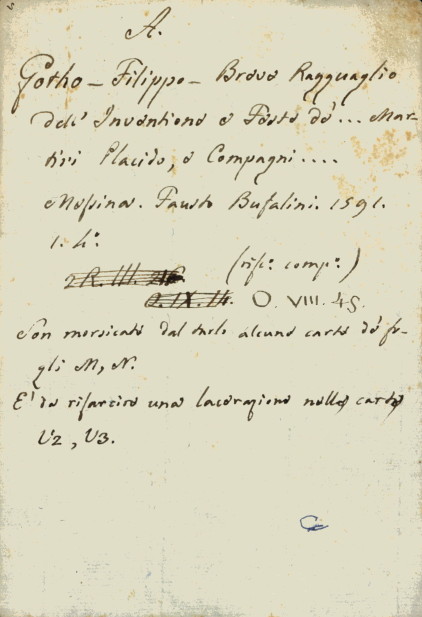 A.
Gotho - Filippo - Breve Ragguaglio
dell' Inventione e Feste de'... Mar-
tiri Placido, e Compagni....
Messina. Fausto Bufalini. 1591.
1. 4°.
(risc. comp.)
O. VIII. 45.
Son morsicate dal tarlo alcune carte de' fo-
gli M, N.
E' da rifarcire una lacerazione nelle carte
V2, V3.